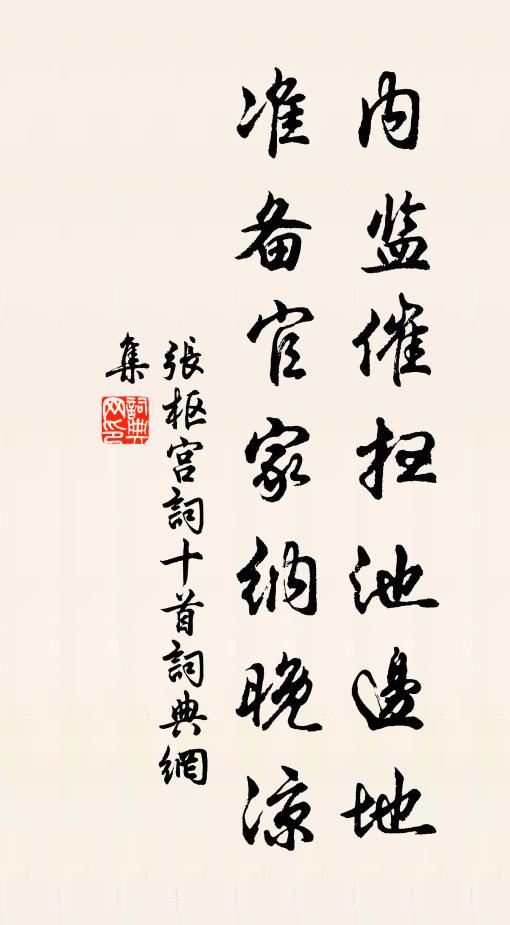 内监催扫池邊地
准备官家纳晚凉
張枢宫詞十首詞典網
集
詞典网印